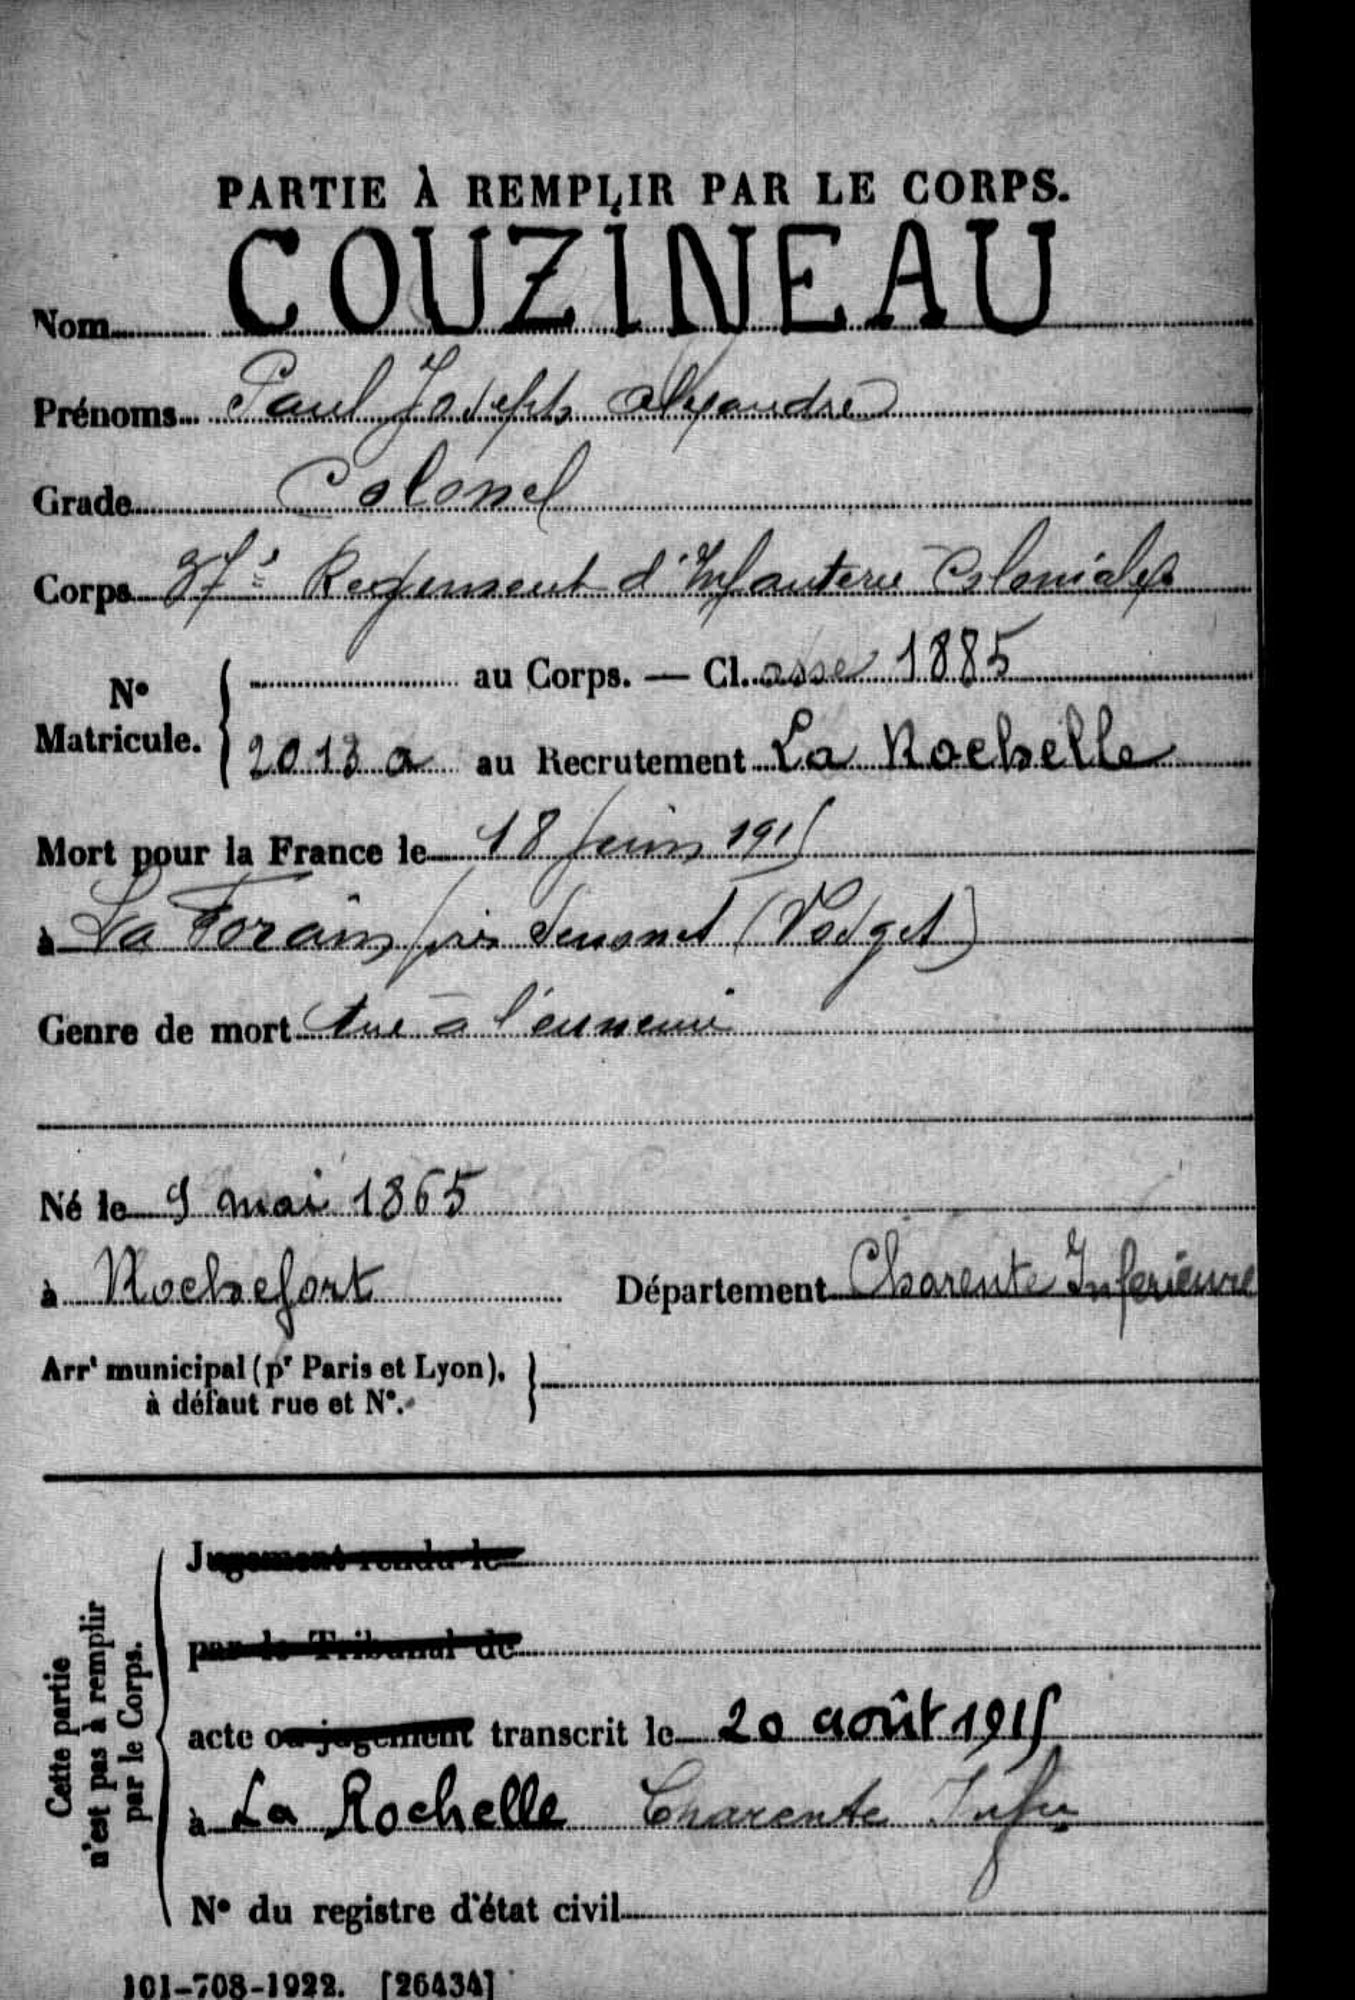 PARTIE À REMPLIR PAR LE CORPS.
Nom COUZINEAU
Prénoms Paul Joseph Alexandre
Grade Colonel
Corps 37e Regiment d'Infanterie Coloniale
N° Matricule. { au Corps. — Cl. asse 1885
2013 a au Recrutement La Rochelle
Mort pour la France le 18 juin 1915
à La Forain près Senones (Vosges)
Genre de mort tué à l'ennemi
Né le 9 mai 1865
à Rochefort Département Charente Inferieure
Arrt municipal (pr Paris et Lyon), }
à défaut rue et N°.
Cette partie
n'est pas à remplir
par le Corps.
Jugement rendu le
par le Tribunal de
acte ou jugement transcrit le 20 août 1915
à La Rochelle Charente Infre
N° du registre d'état civil
101-708-1922. [26434]